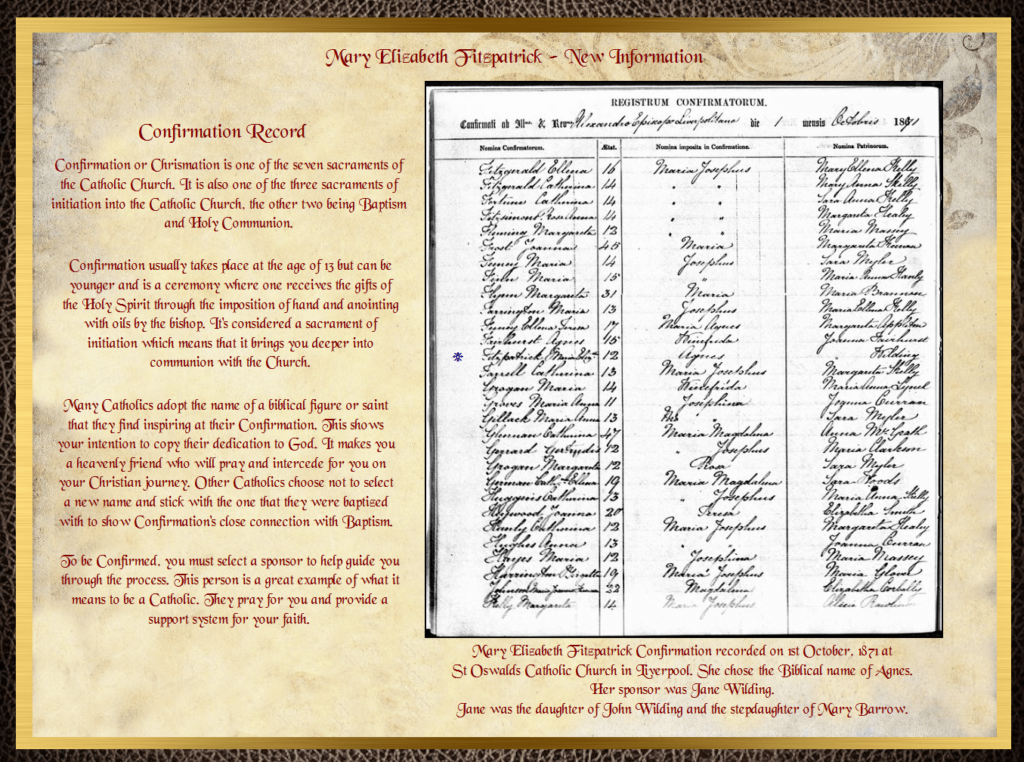 Mary Elizabeth Fitzpatrick - New Information
Confirmation Record
Confirmation or Chrismation is one of the seven sacraments of
the Catholic Church. It is also one of the three sacraments of
initiation into the Catholic Church, the other two being Baptism
and Holy Communion.
Confirmation usually takes place at the age of 13 but can be
younger and is a ceremony where one receives the gifts of
the Holy Spirit through the imposition of hand and anointing
with oils by the bishop. It's considered a sacrament of
initiation which means that it brings you deeper into
communion with the Church.
Many Catholics adopt the name of a biblical figure or saint
that they find inspiring at their Confirmation. This shows
your intention to copy their dedication to God. It makes you
a heavenly friend who will pray and intercede for you on
your Christian journey. Other Catholics choose not to select
a new name and stick with the one that they were baptized
with to show Confirmation's close connection with Baptism.
To be Confirmed, you must select a sponsor to help guide you
through the process. This person is a great example of what it
means to be a Catholic. They pray for you and provide a
support system for your faith.
REGISTRUM CONFIRMATORUM.
Confirmati ab Illmo & Revmo Alexandro Episcopo Liverpolitano die 1 mensis Octobris 1871
Nomina Confirmatorum. Ætat. Nomina imposita in Confirmatione. Nomina Patrinorum.
Fitzgerald Ellena 16 Maria Josephus Mary Ellena Kelly
Fitzgerald Catharina 14 " " Mary Anna Skelly
Fortune Catharina 14 " " Sara Anna Kelly
Fitzsimons Rose Anna 14 " " Margarita Healy
Fleming Margarita 12 " " Maria Massey
Frost Joanna 45 Maria Margarita
Maria 14 Josephus Sara Myler
Maria 15 " Maria Anna
Flynn Margarita 31 Maria Maria Brannon
Farrington Maria 13 Josephus Maria Ellena Kelly
Ellena Teresa 17 Maria Agnes Margarita Appleton
Fairhurst Agnes 45 Winefrida Joanna Fairhurst
* Fitzpatrick Maria Elizth 12 Agnes " Wilding
Farrell Catharina 13 Maria Josephus Margarita Skelly
Grogan Maria 14 Winefrida Maria Anna
Groves Maria Anna 11 Josephina Joanna Curran
Gillack Maria Anna 13 " Sara Myler
Glennan Catharina 47 Maria Magdalena Anna McGrath
Gerard Gertrudis 12 " Josephus Maria Clarkson
Grogan Margarita 12 Rosa Sara Myler
Gorman Cathe Ellena 19 Maria Magdalena Sara Woods
Huggins Catharina 13 " Josephus Maria Anna Skelly
Heywood Joanna 20 Elizabetha Smith
Hanly Catharina 12 Maria Josephus Margarita Healy
Hughes Anna 13 " " Joanna Curran
Hayes Maria 12 Josephina Maria Massey
Harrington 19 Maria Josephus Maria Glover
Johnson Maria Joanna 22 Magdalena Elizabetha Corbally
Kelly Margarita 14 Maria Josephus
Mary Elizabeth Fitzpatrick Confirmation recorded on 1st October, 1871 at
St Oswalds Catholic Church in Liverpool. She chose the Biblical name of Agnes.
Her sponsor was Jane Wilding.
Jane was the daughter of John Wilding and the stepdaughter of Mary Barrow.